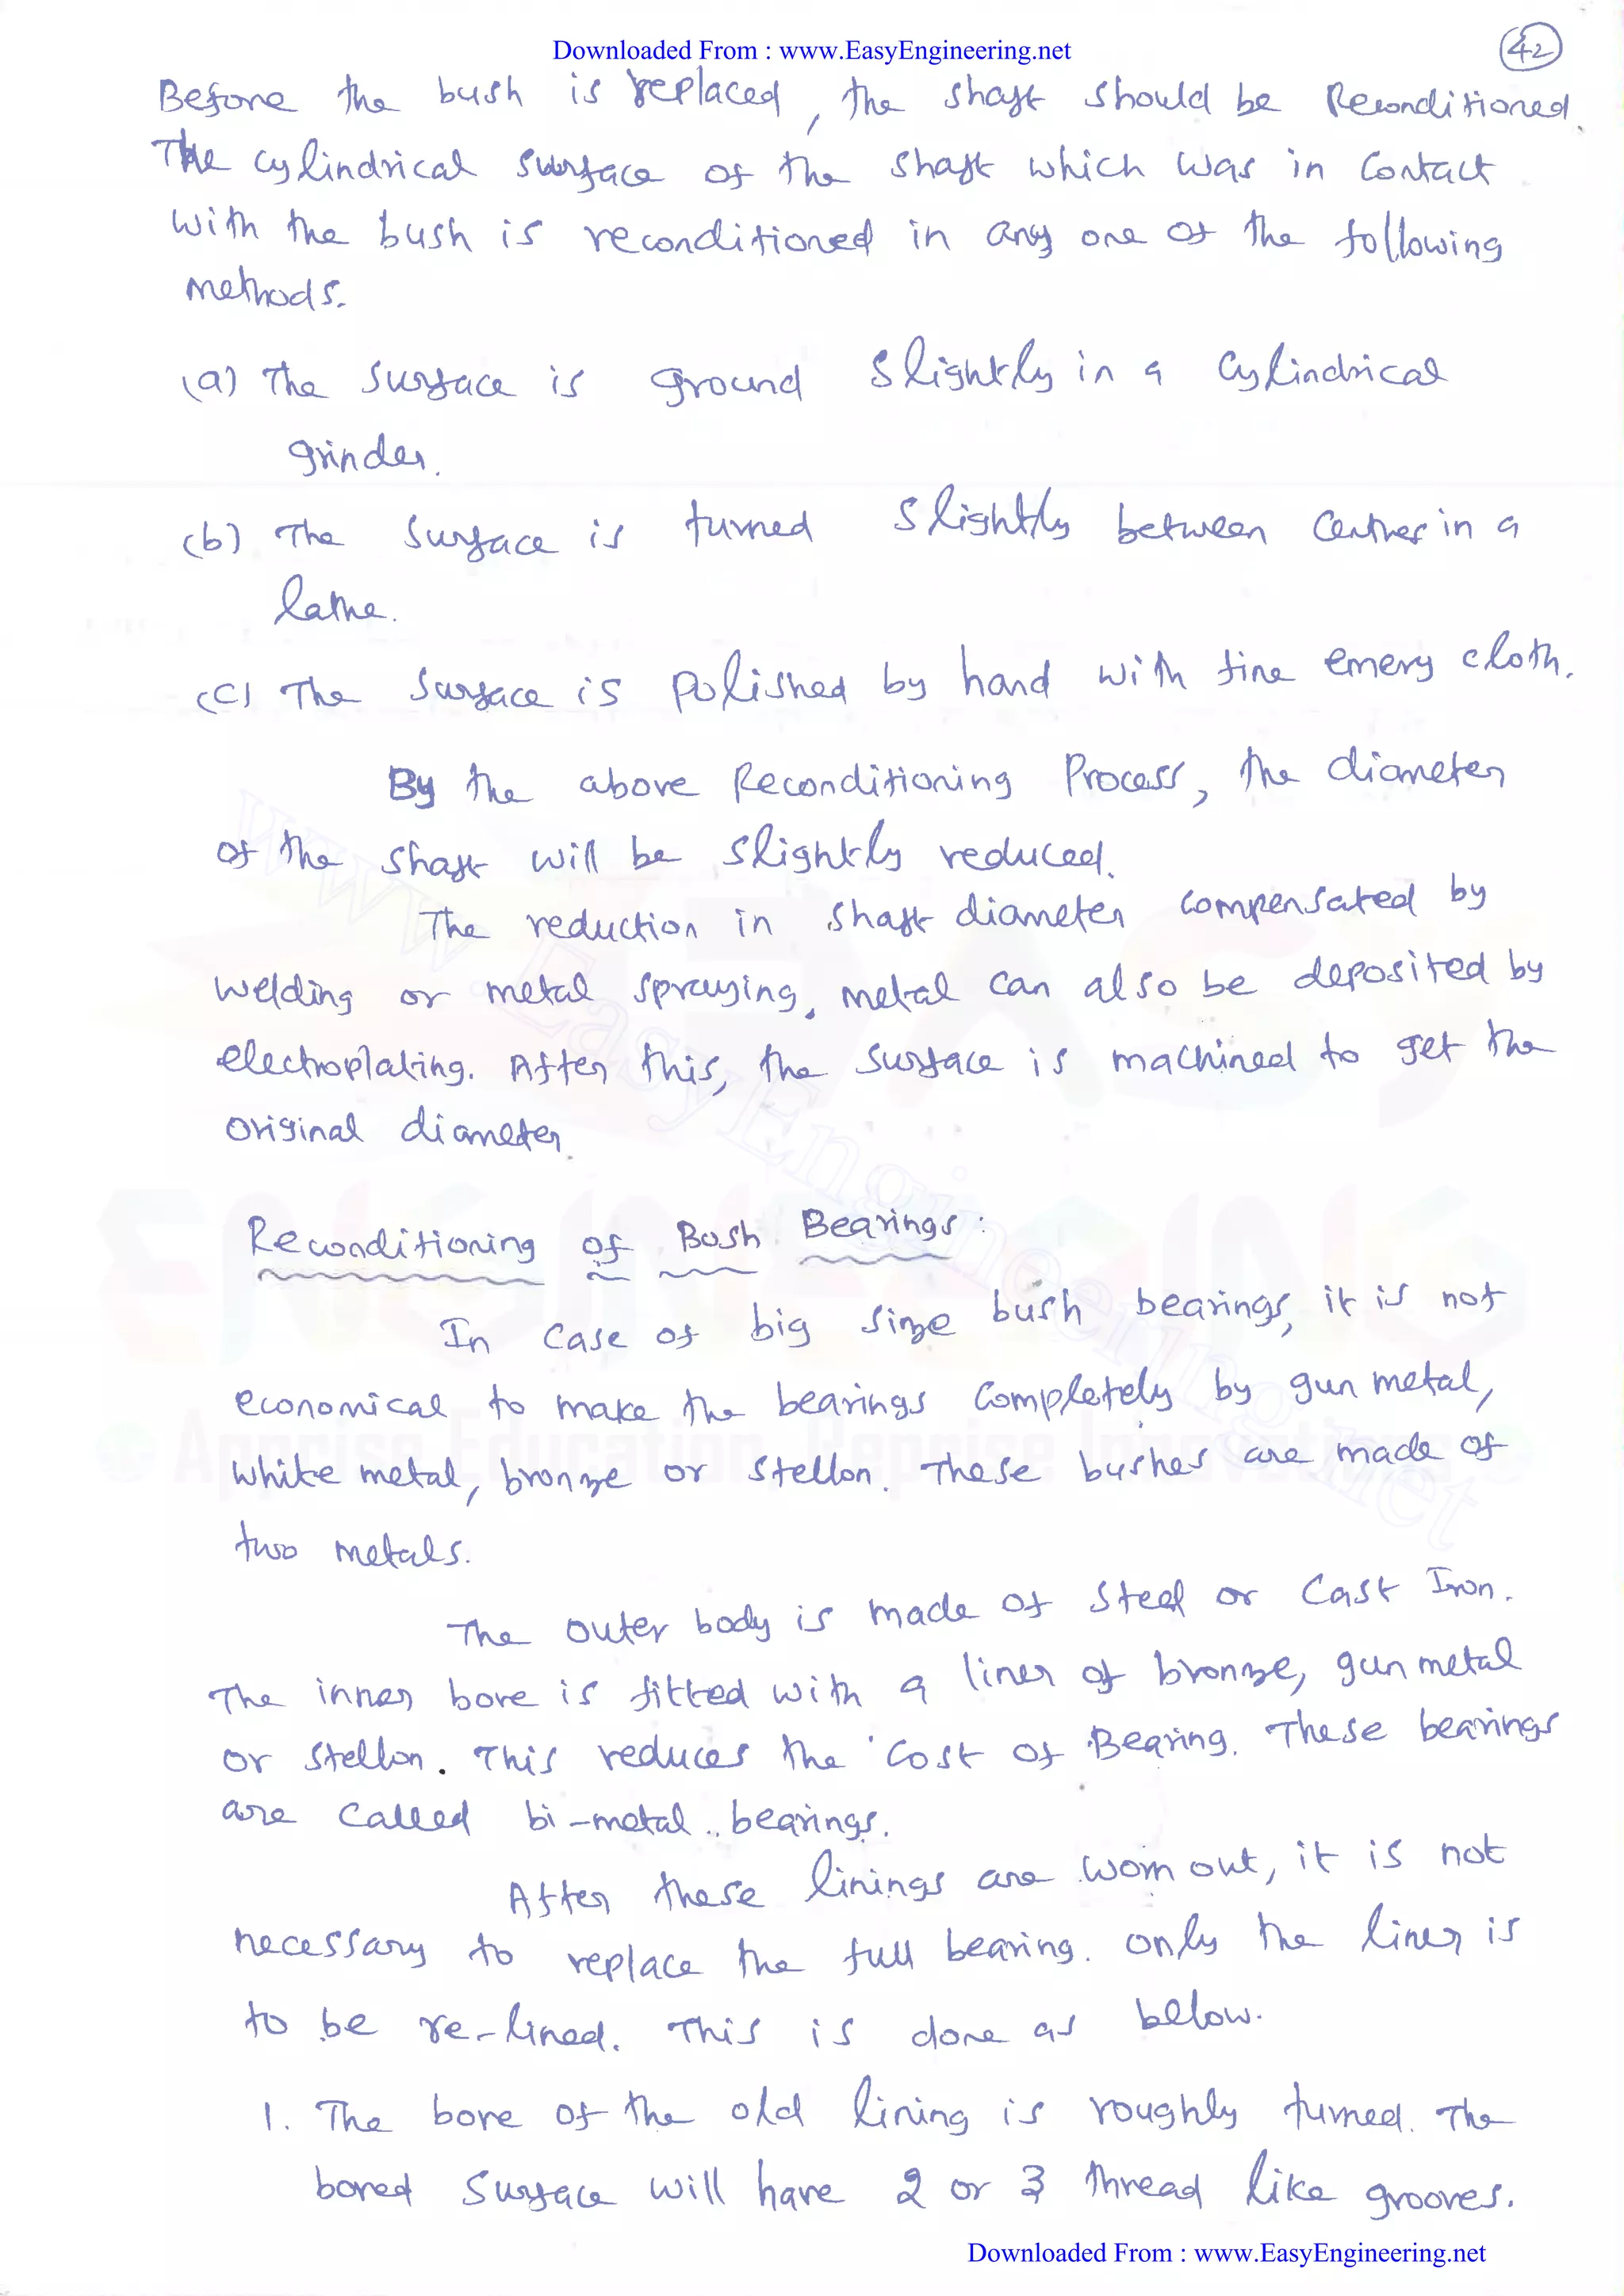 Downloaded From : www.EasyEngineering.net
42
Before the bush is replaced, the shaft should be Reconditioned.
The cylindrical surface of the shaft which was in Contact
with the bush is reconditioned in any one of the following
methods.
(a) The surface is ground slightly in a Cylindrical
grinder.
(b) The surface is turned slightly between Centres in a
lathe.
(c) The surface is polished by hand with fine emery cloth.
By the above Reconditioning Process, the diameter
of the shaft will be slightly reduced.
The reduction in shaft diameter compensated by
welding or metal spraying, metal can also be deposited by
electroplating. After this, the surface is machined to get the
original diameter.
Reconditioning of Bush Bearings :
In case of big size bush bearings, it is not
economical to make the bearings completely by gun metal,
white metal, bronze or stellon. These bushes are made of
two metals.
The outer body is made of steel or Cast Iron.
The inner bore is fitted with a liner of bronze, gun metal
or stellon. This reduces the cost of Bearing. These bearings
are called bi-metal bearings.
After these linings are worn out, it is not
necessary to replace the full bearing. only the liner is
to be re-lined. This is done as below.
1. The bore of the old lining is roughly turned. The
bored surface will have 2 or 3 thread like grooves.
Downloaded From : www.EasyEngineering.net
www.EasyEngineering.net
EASY
ENGINEERING
Apprise Education, Reprise Innovations